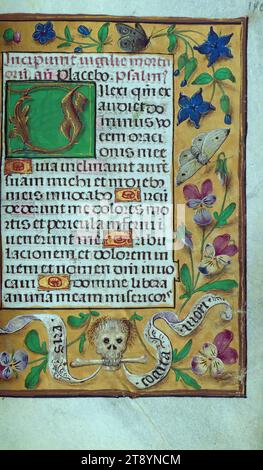 Incipiunt vigilie mortu
orū. añ Placebo. Psalm⁹
Dilexi qm̄ ex
audiet do
minus vo
cem orati
onis mee
Quia inclinavit aurē
suam michi et in dieb⁹
meis invocabo Circū
dederunt me dolores mor
tis et pericula inferni in
venerunt me Tribu
lacionem et dolorem in
veni et nomen dn̄i invo
cavi O domine libera
animam meam misericor
contra
alamy
Image ID: 2T8YNCM
www.alamy.com